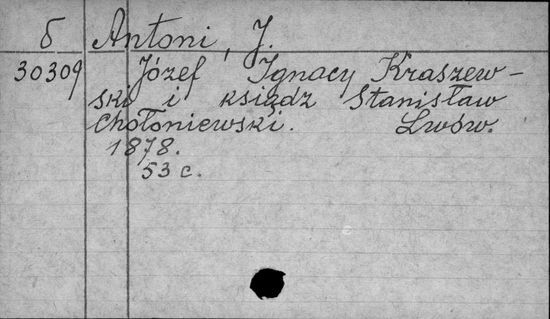 б Antoni, J.
30309 Józef Ignacy Kraszew-
ski i ksiądz Stanisław
Chołoniewski. Lwów.
1878.
53 c.